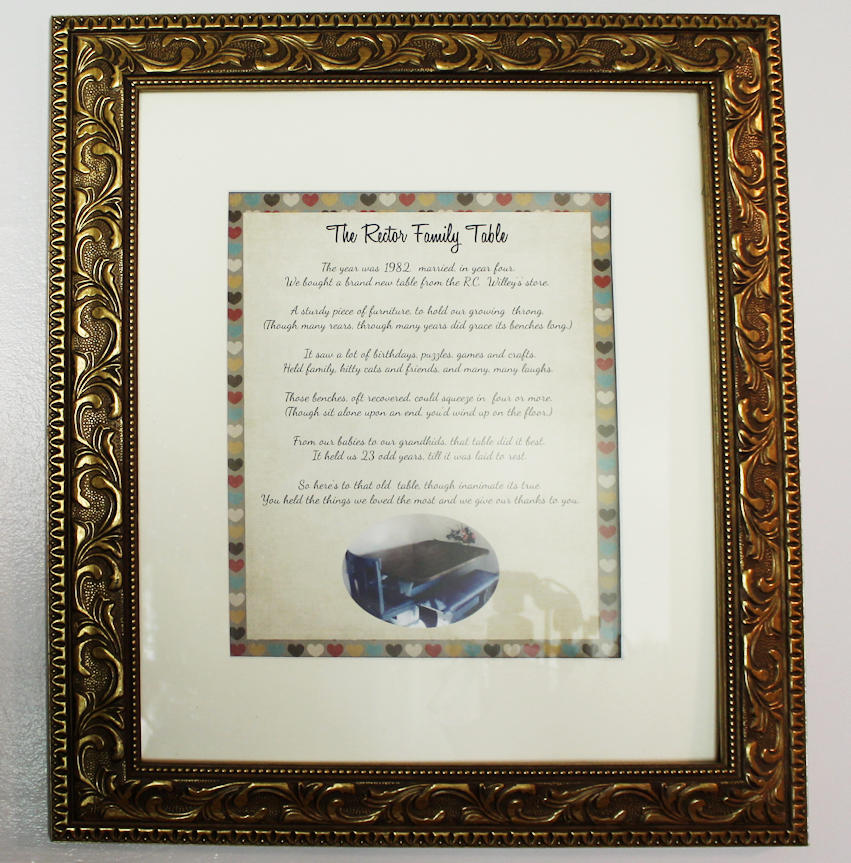 The Rector Family Table
The year was 1982, married, in year four.
We bought a brand new table from the R.C. Willey's store.
A sturdy piece of furniture, to hold our growing throng.
(Though many rears, through many years did grace its benches long.)
It saw a lot of birthdays, puzzles, games and crafts.
Held family, kitty cats and friends, and many, many laughs.
Those benches, oft recovered, could squeeze in four or more.
(Though sit alone upon an end, you'd wind up on the floor.)
From our babies to our grandkids, that table did it best.
It held us 23 odd years, till it was laid to rest.
So here's to that old table, though inanimate its true.
You held the things we loved the most and we give our thanks to you.